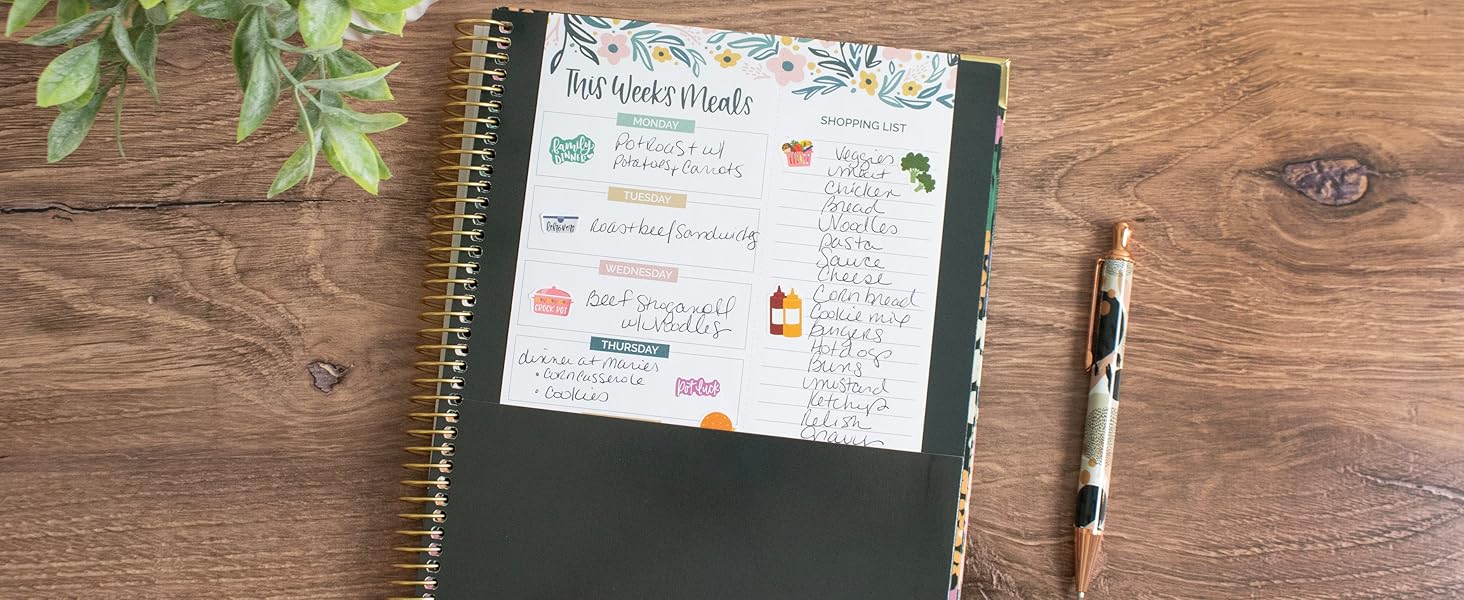 This Week's Meals
MONDAY
family
DINNER
Potroast w/
Potatoes + Carrots
TUESDAY
leftovers
Roast beef Sandwiches
WEDNESDAY
CROCK POT
Beef Stroganoff
w/ Noodles
THURSDAY
dinner at Maries
• Corn Casserole
• Cookies
Pot luck
SHOPPING LIST
Veggies
meat
Chicken
Bread
Noodles
Pasta
Sauce
Cheese
Corn bread
Cookie mix
Burgers
Hotdogs
Buns
Mustard
Ketchup
Relish
Gravy